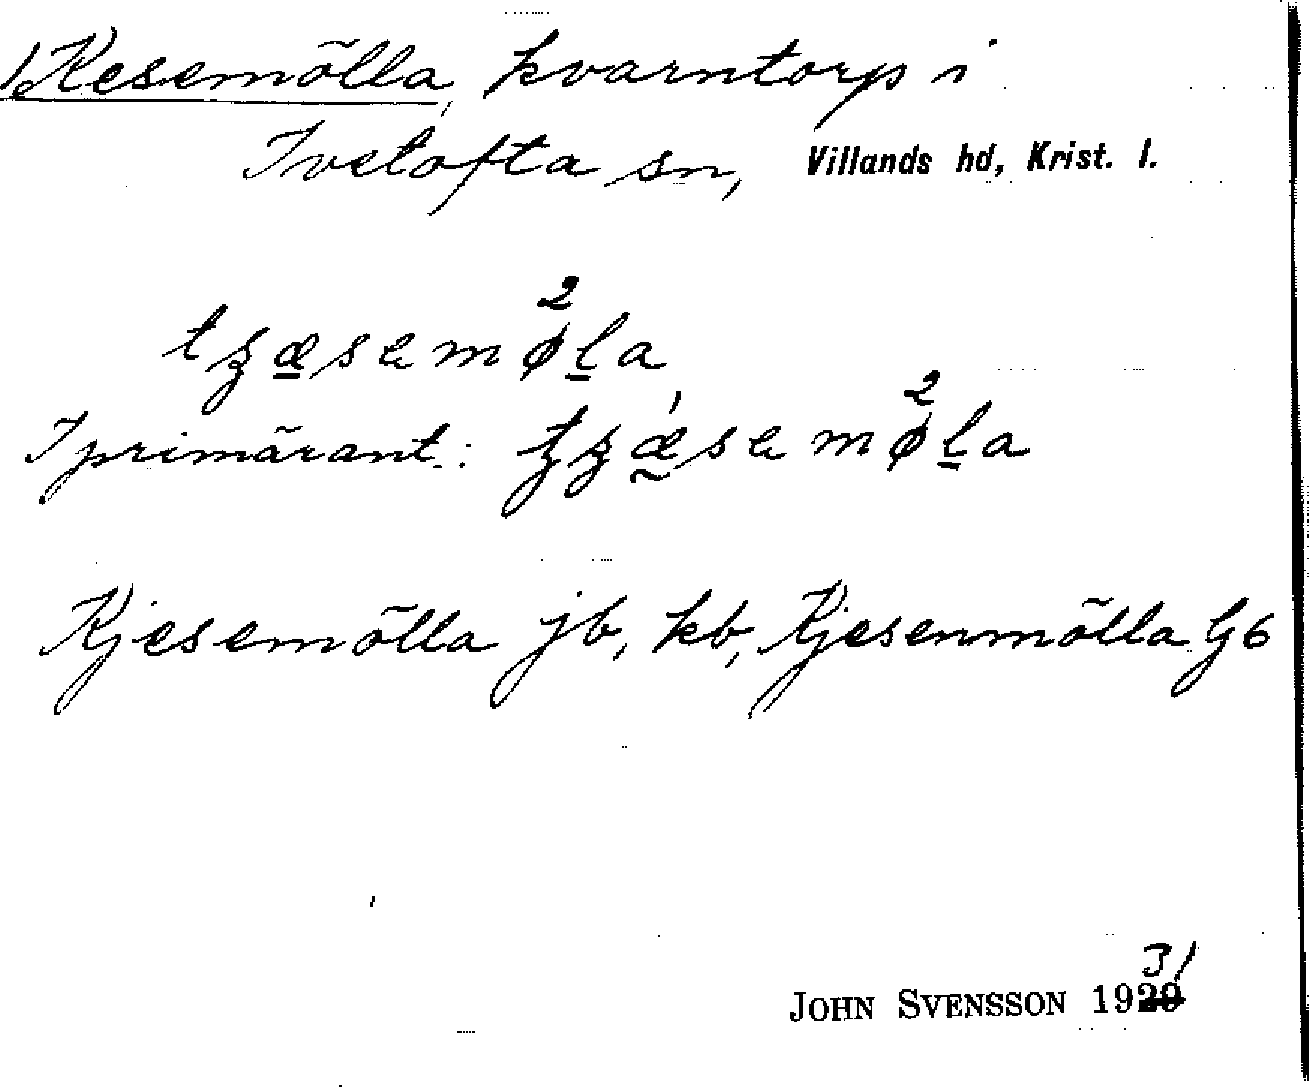 1) Kesemölla, kvarntorp i
Ivetofta sn, Villands hd, Krist. l.
tʒæsemø²la,
I primärant.: tʒǽsemø²la
Kjesemölla jb, kb, Kjesenmölla G6
JOHN SVENSSON 1929 31